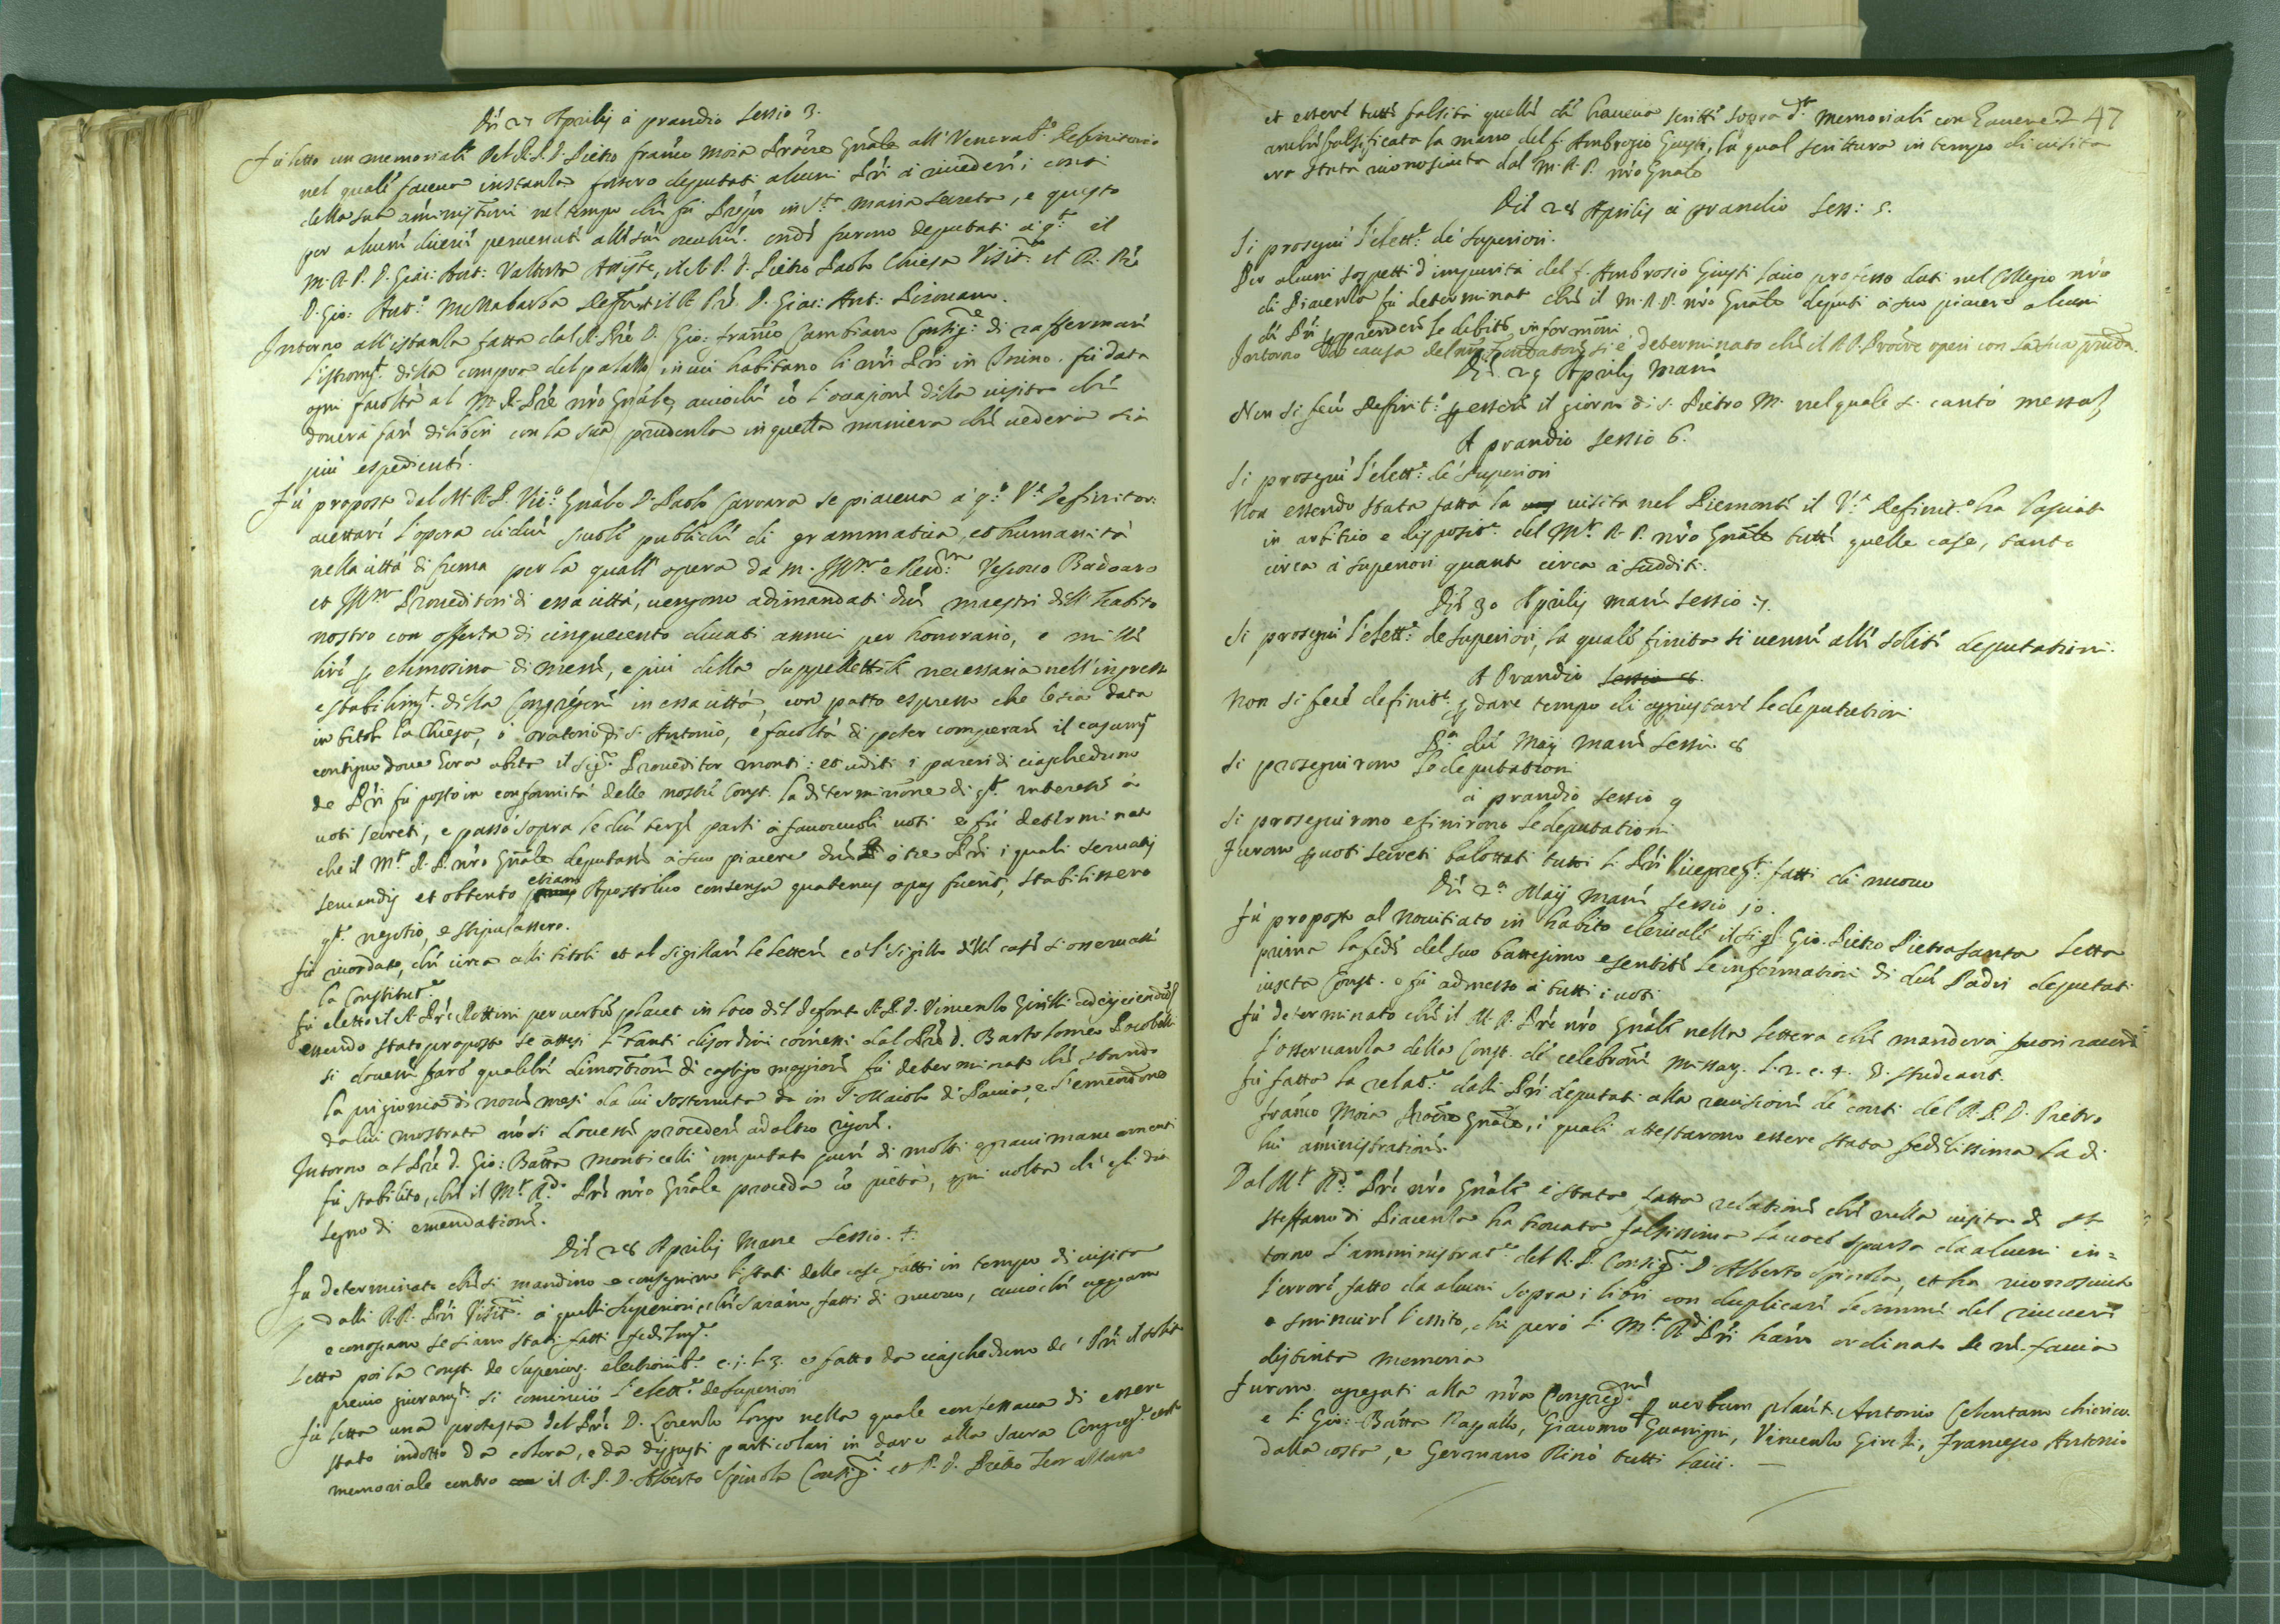 Die 27 Aprilis à prandio Sessio 3.
Fù letto un memoriale del R. P. D. Pietro Franco Moia Procre Gnale all' Venerabe Definitorio
nel quale faceva instanza fossero deputati alcuni Pri à riuedere i conti
della sua aministrne nel tempo che fù Prepto in Sta Maria Secreta, e questo
per alcune dicerie peruenute alle sue orecchie. onde furono deputati à qto il
M. R. P. D. Giac: Ant: Valtorta Assiste, il R. P. D. Pietro Paolo Chiesa Visitre et R. Pre
D. Gio: Anto Mezzabarba il R. Pre D. Giac: Ant:
Intorno all' istanza fatta dal R. Pre D. Gio: Franco Cambiano Consigre di raffermare
l'istromto della compra del palazzo in cui habitano li nri Pri in Torino. fù data
ogni facoltà al M. R. Pre nro Gnale, acciochè cò l'occasione della uisita che
douerà fare deliberi con la sua prudenza in quella maniera che uederà sia
più espediente.
Fù proposto dal M. R. P. Vico Gnale D. Paolo Carrara se piaceua à qo Ve Definitor:
accettare l'opera di due scuole publiche di grammatica, et humanità
nella città di Crema per la quall' opera da M. Illmo e Reudmo Vescouo Badoaro
et Illmi Proueditori di essa città, uengono adimandati due maestri dell' habito
nostro con offerta di cinquecento ducati annui per honorario, e mille
lire p elemosina di messe, e più della suppellettile necessaria nell' ingresso
e stabilimto della Congregne in essa città, con patto espresso che le sia data
in titolo la Chiesa, ò oratorio di S. Antonio, e facoltà di poter comperare il casamto
contiguo doue hora abita il sigr Proueditor Monti: et uditi i pareri di ciascheduno
de Pri fù posto in conformità delle nostre Const. la determinne di qto interesse à
uoti secreti, e passò sopra le due terze parti à fauoreuoli uoti e fù determinato
che il Mto R. P. nro Gnale deputasse à suo piacere due ò tre Pri i quali seruatis
seruandis et obtento etiam Apostolico consensu quatenus opus fuerit, stabilissero
qto negotio, e stipulassero.
Fù ricordato, che circa alli titoli et al sigillare le lettere cò 'l sigillo delle case si osseruasse
la Constitutne
Fù eletto il R. Pre Rottini per uerbum placet in loco del defonto R. P. D. Vincenzo Girelli
essendo stato proposto se attesi li tanti disordini comessi dal Pre D. Bartolomeo
si douesse fare qualche dimostratione di castigo maggiore fù determinato che stando
la prigionia di noue mesi da lui sostenuta da in S. Maiolo di Pauia, e l'emendne
da lui mostrata nò si douesse procedere ad altro rigore.
Intorno al Pre D. Gio: Batta Monticelli imputato pure di molti graui mancamenti
fù stabilito, che il Mto Rdo Pre nro Gnale proceda cò pietà, ogni uolta che egli dia
segno di emendatione.
Die 28 Aprilis Mane Sessio. 4.
Fù determinato che si mandino e consegnino li stati delle case fatti in tempo di uisita
dalli R. R. Pri Visitri à quelli Superiori, che saranno fatti di nuouo, acciochè ueggano
e conoscano se siano stati fatti fedelmte.
Letta poi la Const. de Superiorum electione e fatto da ciascheduno de' Pri il solito
previo giuramto si cominciò l'elettne de Superiori
Fù letta una protesta del Pre D. Lorenzo Longo nella quale confessaua di essere
stato indotto da colera, e da disgusti particolari in dare alla Sacra Congregne certo
memoriale contro il R. P. D. Alberto Spinola Consigre et P. D. Pietro
47
et essere tutte falsità quelle che haueua scritte sopra dto memoriale con hauere
anche falsificata la mano del f. Ambrosio Giusti, la qual scrittura in tempo di uisita
era stata riconosciuta dal M. R. P. nro Gnale
Die 28 Aprilis à prandio Sess: 5.
Si proseguì l'elettne de' Superiori.
Per alcuni sospetti d'impurità del f. Ambrosio Giusti laico professo dati nel Collegio nro
di Piacenza fù determinato che il M. R. P. nro Gnale deputi à suo piacere alcuni
de Pri à prendere le debite informni
Intorno alla causa del si è determinato che il R. P. Procre operi con la sua prudza.
Die 29 Aprilis Mane
Non si fece Definito p essere il giorno di S. Pietro M. nel quale si cantò messa
A prandio Sessio 6.
Si proseguì l'elettne de' Superiori
Non essendo stata fatta la uisita nel Piemonte il Ve Definito ha lasciato
in arbitrio e dispositne del Mto R. P. nro Gnale tutte quelle case, tanto
circa à superiori quanto circa à sudditi.
Die 30 Aprilis mane Sessio 7.
Si proseguì l'elettne de Superiori, la quale finita si uenne alle solite deputationi.
A Prandio Sessio 8.
Non si fece definite p dare tempo di aggiustare le deputationi
Pa die Maij Mane Sessio 8
Si proseguirono le deputationi
à prandio Sessio 9
Si proseguirono e finirono le deputationi
Furono p uoti secreti balottati tutti li Pri Vicepreti fatti di nuouo
Die 2a Maij Mane Sessio 10.
Fù proposto al Nouitiato in habito clericale il sigr Gio. Pietro Pietrasanta letta
prima la fede del suo battesimo e sentite le informationi di due Padri deputati
iuxta Const. e fù admesso à tutti i uoti
Fù determinato che il M. R. Pre nro Gnale nella lettera che manderà fuori
l'osseruanza della Const. de celebrne Missarum l. 2. c. 4. D. Studeant.
Fù fatta la relatne dalli Pri deputati alla reuisione de conti del R. P. D. Pietro
Franco Moia Procre Gnale, i quali attestarono essere stata fedelissima la di
lui aministratione.
Dal Mto Rdo Pre nro Gnale è stata fatta relatione che nella uisita di Sto
Steffano di Piacenza ha trouata falsissima la uoce sparsa da alcuni in=
torno l'amministratne del R. P. Consigre D. Alberto Spinola, et ha riconosciuto
l'errore fatto da alcuni sopra i libri con duplicare le somme del riceuere
e sminuire l'essito, che però li Mto Rdi Pri hanno ordinato se ne faccia
distinta memoria
Furono agregati alla nra Congregne p uerbum placet. Antonio Celentano chierico
e li Gio: Batta Rapallo, Giacomo Guarigni, Vincenzo Girelli, Francesco Antonio
dalla costa, e Germano Rinò tutti laici.